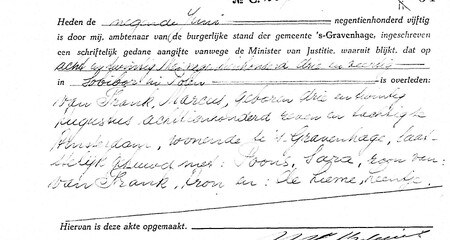 Heden de negende Juni negentienhonderd vijftig
is door mij, ambtenaar van de burgerlijke stand der gemeente 's-Gravenhage, ingeschreven
een schriftelijk gedane aangifte vanwege de Minister van Justitie, waaruit blijkt, dat op
acht en twintig Mei negentienhonderd drie en veertig
in Sobibor in Polen is overleden:
van Frank, Marcus, geboren drie en twintig
Augustus achttienhonderd zeven en tachtig te
Amsterdam, wonende te 's-Gravenhage, laat-
stelijk gehuwd met: Soons, Sara, zoon van:
van Frank, Aron en: de Lieme, Leentje.
Hiervan is deze akte opgemaakt.